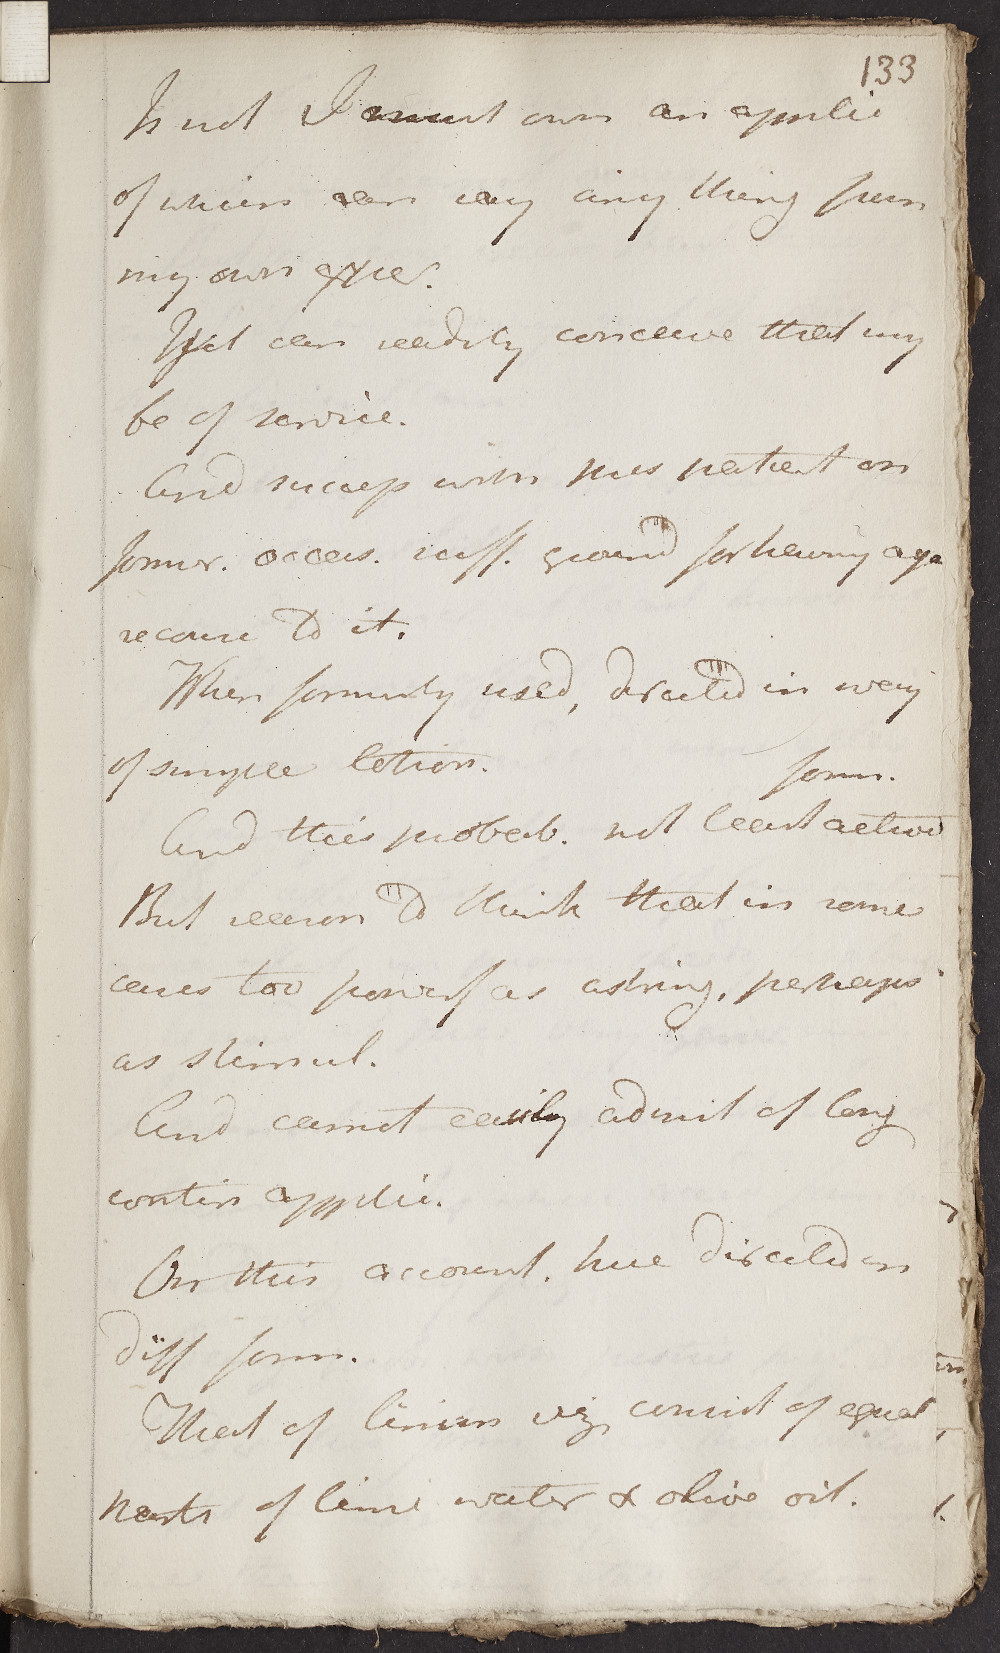 133
Is not I must own an applic
of which can say any thing from
my own exper.
Yet can readily conceive that may
be of service.
And success with this patient on
former. occas. suff. ground for having aga
recourse to it.
When formerly used, directed in way
of simple lotion.
form.
And this probab. not least active
But reason to think that in some
cases too powerf as astring, perhaps
as stimul.
And cannot easily admit of long
contin applic.
On this account. have directed in
diff form.
That of linim viz consist of equal
parts of lime water & olive oil.